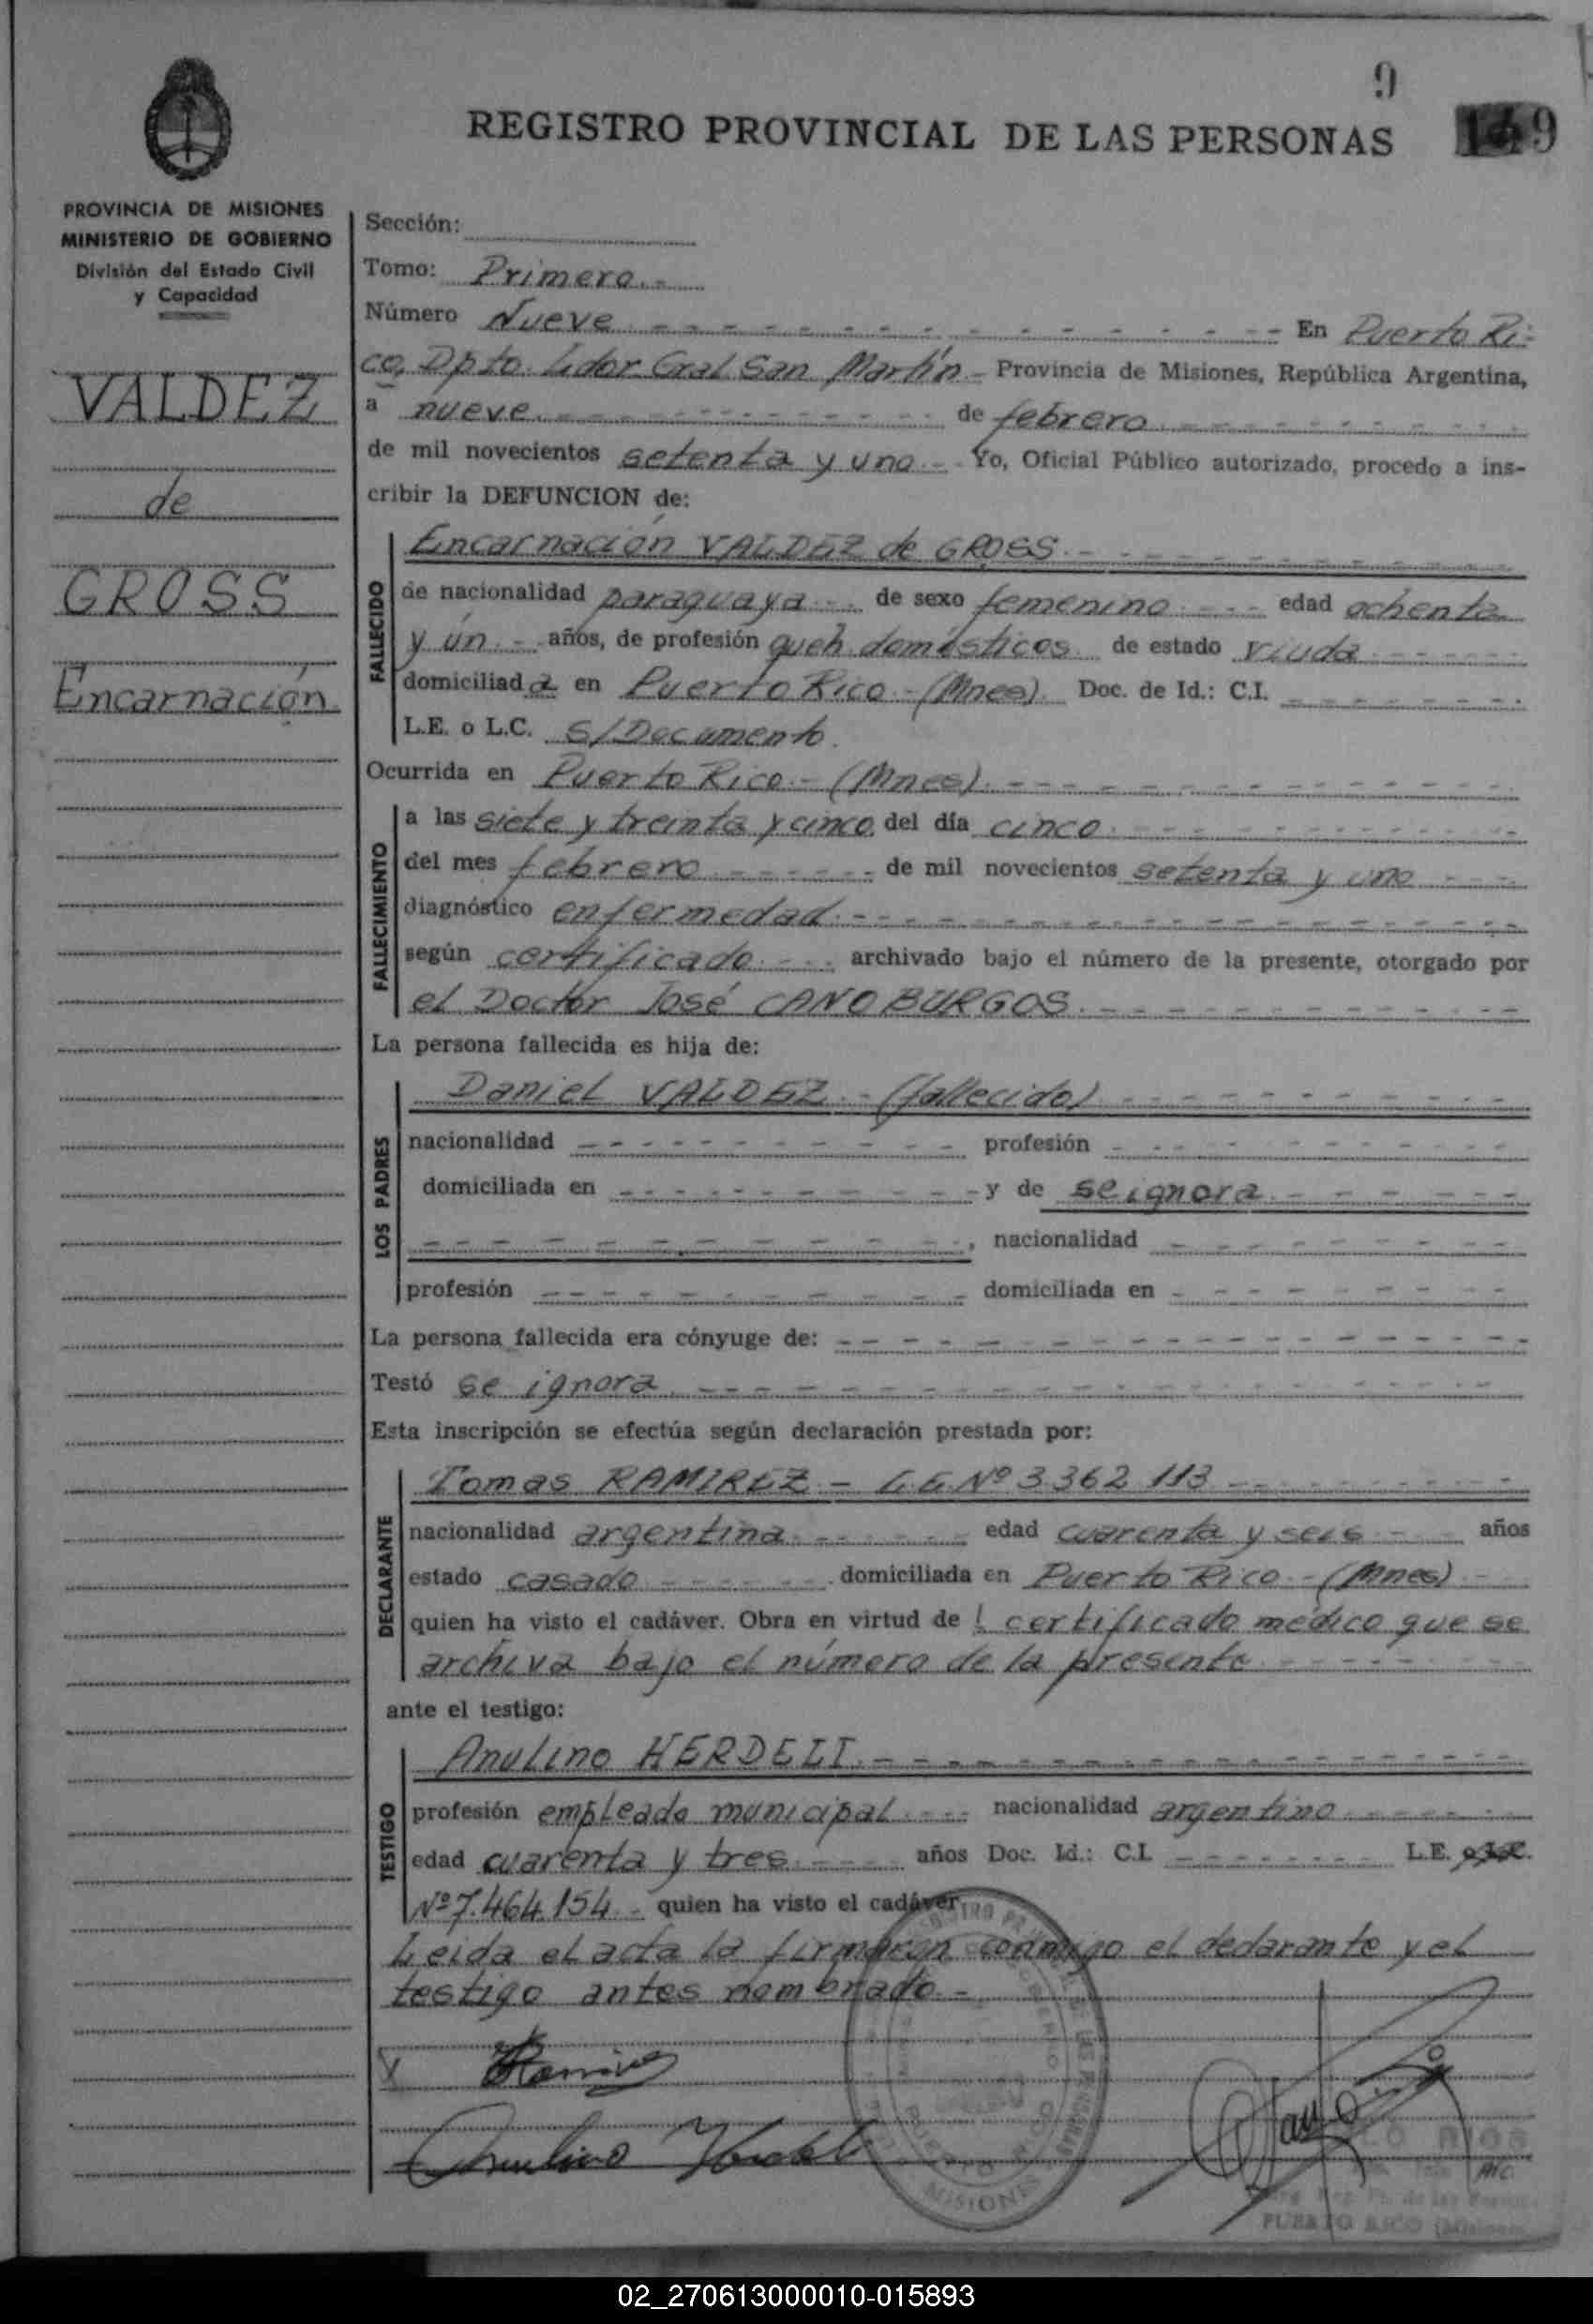 9
REGISTRO PROVINCIAL DE LAS PERSONAS
149
PROVINCIA DE MISIONES
MINISTERIO DE GOBIERNO
División del Estado Civil
y Capacidad
VALDEZ
de
GROSS
Encarnación
Sección:
Tomo: Primero.-
Número Nueve - - - En Puerto Ri-
co, Dpto. Ldor Gral San Martín - Provincia de Misiones, República Argentina,
a nueve - - - de febrero - - -
de mil novecientos setenta y uno.- Yo, Oficial Público autorizado, procedo a ins-
cribir la DEFUNCION de:
FALLECIDO
Encarnación VALDEZ de GROSS.- - -
de nacionalidad paraguaya - - de sexo femenino - - - edad ochenta
y ún.- años, de profesión queh. domésticos de estado viuda - - -
domiciliada en Puerto Rico - (Mnes) Doc. de Id.: C.I. - - -
L.E. o L.C. S/Documento.
Ocurrida en Puerto Rico - (Mnes) - - -
FALLECIMIENTO
a las siete y treinta y cinco del día cinco - - -
del mes febrero - - - de mil novecientos setenta y uno - - -
diagnóstico enfermedad - - -
según certificado - - - archivado bajo el número de la presente, otorgado por
el Doctor José CANO BURGOS. - - -
La persona fallecida es hija de:
LOS PADRES
Daniel VALDEZ - (fallecido) - - -
nacionalidad - - - profesión - - -
domiciliada en - - - y de se ignora - - -
- - -, nacionalidad - - -
profesión - - - domiciliada en - - -
La persona fallecida era cónyuge de: - - -
Testó se ignora - - -
Esta inscripción se efectúa según declaración prestada por:
DECLARANTE
Tomas RAMIREZ - L.E. Nº 3362 113 - - -
nacionalidad argentina - - - edad cuarenta y seis - - años
estado casado - - - domiciliada en Puerto Rico - (Mnes) - -
quien ha visto el cadáver. Obra en virtud de l certificado médico que se
archiva bajo el número de la presente - - -
ante el testigo:
TESTIGO
Anulino HERDELI - - -
profesión empleado municipal - - - nacionalidad argentino - - -
edad cuarenta y tres - - - años Doc. Id.: C.I. - - - L.E. o L.C.
Nº 7.464.154 - quien ha visto el cadáver
Leida el acta la firmaron conmigo el declarante y el
testigo antes nombrado.-
X Ramirez
Anulino Herdeli
MISIONES
PUERTO RICO
02_270613000010-015893